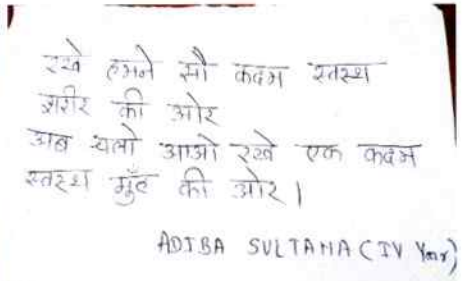 रखे हमने सौ कदम स्वस्थ
शरीर की ओर
अब चलो आओ रखे एक कदम
स्वस्थ मुँह की ओर।
ADIBA SULTANA (IV Year)